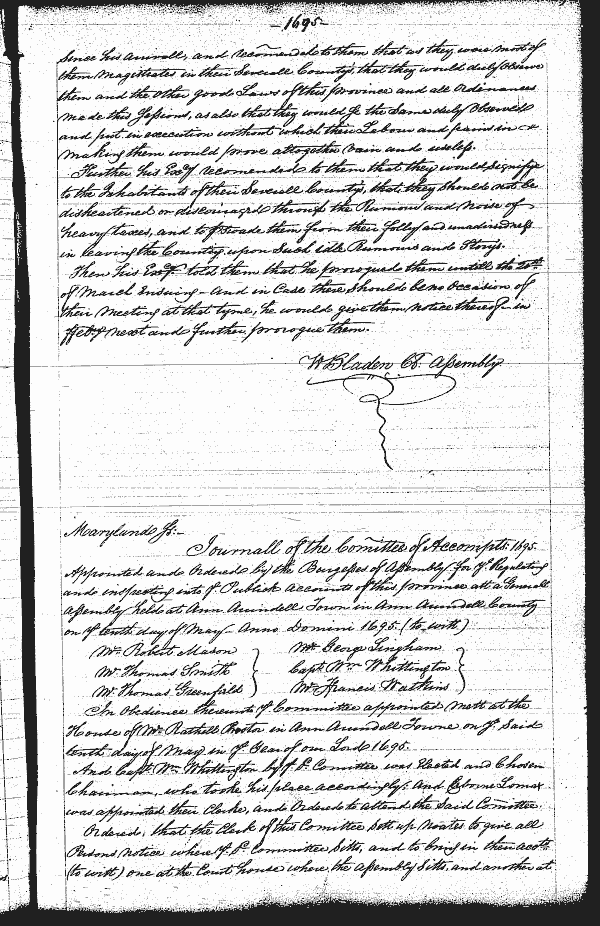 -1695-
Since his arrivall, and recomended to them that as they were most of
them Magistrates in their Severall Countys, that they would duly observe
them and the other good Laws of this province and all Ordinances
made this Sessions, as also that they would se the Same duly Observed
and put in execution without which their Labour and pains in
making them would prove altogether vain and useless.
Further his Exy. recomended to them that they would Signifye
to the Inhabitants of their Severall Countys, that they Should not be
disheartened or discouraged through the Rumour and Noise of
heavy taxes, and to perswade them from their folly and unadvisedness
in leaving the Country upon Such idle Rumours and Storys.
Then his Exy. told them that he prorogued them untill the
of March Ensuing - and in Case there Should be no Occasion of
their Meeting at that tyme, he would give them notice thereof in
ffeby next and further prorogue them.
W Bladen Cl. Assembly
Maryland Ss:-
Journall of the Comittee of Accompts: 1695.
Appointed and Ordered by the Burgesses of Assembly for ye. Regulating
and inspecting into ye Publick accounts of this province att a Generall
Assembly held at Ann Arundell Town in Ann Arundell County
on ye tenth day of May Anno Domini 1695. (to witt)
Mr. Robert Mason } Mr. George Lingham }
Mr. Thomas Smith } Capt. Wm. Whittington }
Mr. Thomas Greenfeild } Mr. Francis Watkins }
In Obedience thereunto ye Committee appointed Mett at the
House of Mr. Rathell Proctor in Ann Arundell Towne on ye. Said
tenth day of May in ye Year of our Lord 1695.
And Capt. Wm. Whittington by ye. sd. Comittee was Elected and Chosen
Chairman, who tooke his place accordingly: And Cleborne Lomax
was appointed their Clerke, and Ordered to attend the Said Comittee.
Ordered, that the Clerk of this Comittee Sett up Noates to give all
Persons notice where ye. sd. Committee Sitts, and to bring in their accotts.
(to witt) one at the Court house where the Assembly Sitts, and another at